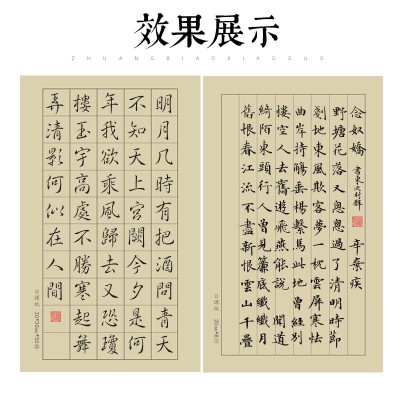 效果展示
ZHUANGBIAOXIAOGUO
明月几時有把酒問青天
不知天上宮闕今夕是何
年我欲乘風歸去又恐瓊
樓玉宇高處不勝寒起舞
弄清影何似在人間
日課紙
念奴嬌 書東流村壁 辛棄疾
野塘花落又悤悤過了清明時節
剗地東風欺客夢一枕雲屏寒怯
曲岸持觴垂楊繫馬此地曾經別
樓空人去舊遊飛燕能說 聞道
綺陌東頭行人曾見簾底纖纖月
舊恨春江流不盡新恨雲山千疊
日課紙 20mm*8行